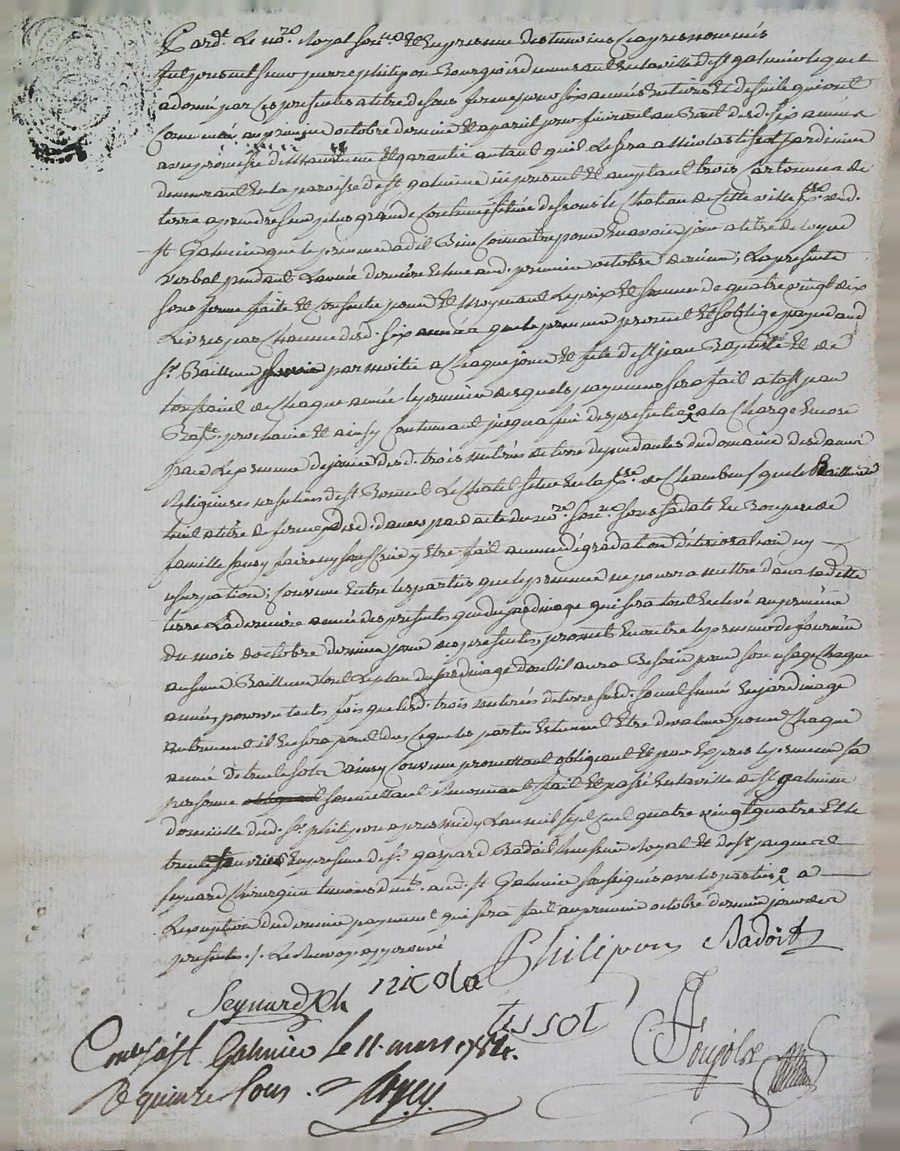 Pard.t Le no.re Royal sous.né et en presence des temoins cy apres nommés
fut present sieur pierre philipon Bourgeois demeurant en la ville de st galmier lequel
a donné par ces presentes a titre de sous ferme pour six années entieres et de suite qui ont
commencé au premier octobre dernier et a pareil jour finiront au Bout desd. six années
avec promesse de maintenue et garantie autant qu'il Le sera a Nicolas tissot Jardinier
demeurant en la paroisse de st galmier icy present et acceptant trois cartonnées de
terre a prendre sur plus grande contenue située dessous le Chateau de cette ville p.sse dud.
st Galmier que le preneur a dit Bien connaitre pour en avoir joui a titre de
verbal pendant L'année derniere echue aud. premier octobre dernier ; La presente
sous ferme faite et consentie pour et moyennant Le prix et somme de quatre vingt dix
Livres par Chacune desd. six années que le preneur promet et s'oblige payer aud
s.r Bailleur par moitié a Chaque jour et fete de st jean Baptiste et de
toussaint de Chaque année le premier desquels payements sera fait a la st jean
Bap.te prochaine et ainsy continuer jusqu'a fin des presentes a la Charge encore
par Le preneur de jouir desd. trois metrées de terre dependantes du domaine des dames
Religieuses ursulines de st Bonnet Le Chatel située en la p.sse de Chambeuf que le Bailleur
tient a titre de ferme desd. dames par acte du no.re sous.né sous sa date en Bon pere de
famille sans y faire ny souffrir y etre fait aucune dégradation déterioration ny
usurpation ; convenu entre les parties que le preneur ne pourra mettre dans ladite
terre La derniere année des presentes que du jardinage qui sera tout enlevé au premier
du mois d'octobre dernier jour des presentes, promet en outre le preneur de fournir
au sieur Bailleur tout Le plan du jardinage dont il aura Besoin pour son usage Chaque
année, pourvu toutes fois que lesd. trois metrées de terre soient semées en jardinage
autrement il en sera pour ce que les parties estiment etre de valeur pour Chaque
année de trente sols ainsy convenu promettant obligeant et par Exprès le preneur sa
personne soumettant renonceant fait et passé en la ville de st galmier
domicille dud. s.r philipon apres midy L'an mil sept cent quatre vingt quatre et Le
trente janvier En presence de s.r gaspard Badoil huissier Royal et de s.r jaques
seynard Chirurgien temoins dud. st Galmier soussignés avec les parties a
L'exception du dernier payement qui sera fait au premier octobre dernier jour des
presentes ./. Le Renvoy approuvé
Philipon Badoil
Seynard Ch nicola
tissot
Fougolse
Con.lé a st. Galmier Le 11. mars 1784.
R quinze sous.